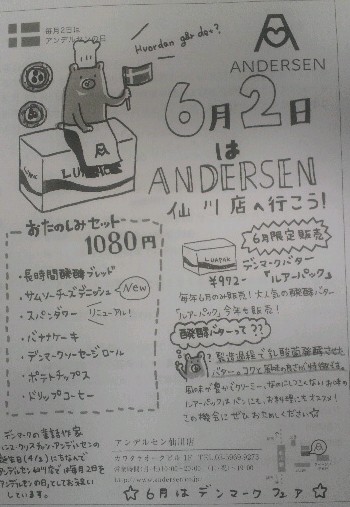 毎月2日は
アンデルセンの日
Hvordan går det?
ANDERSEN
6月2日
は
ANDERSEN
仙川店へ行こう!
LURPAK
おたのしみセット
1080円
・長時間醗酵ブレッド
・サムソーチーズデニッシュ
New
・スパンダワー
リニューアル!
・バナナケーキ
・デンマークソーセージロール
・ポテトチップス
・ドリップコーヒー
6月限定販売
デンマークバター
『ルアーパック』
LURPAK
¥972-
毎年6月のみ販売!大人気の醗酵バター
ルアーパック 今年も販売!
醗酵バターって??
製造過程で乳酸菌醗酵させた
バター。コクと風味の良さが特徴です。
風味が豊かでクリーミー、なめらかな
ルアーパックはパンにも、お料理にもオススメ!
この機会にぜひお試しください☆
デンマークの童話作家
ハンス・クリスチャン・アンデルセンの
誕生日(4/2)にちなんで
アンデルセン仙川店では毎月2日を
アンデルセンの日としてお祝い
しています。
アンデルセン仙川店
☆6月はデンマークフェア☆